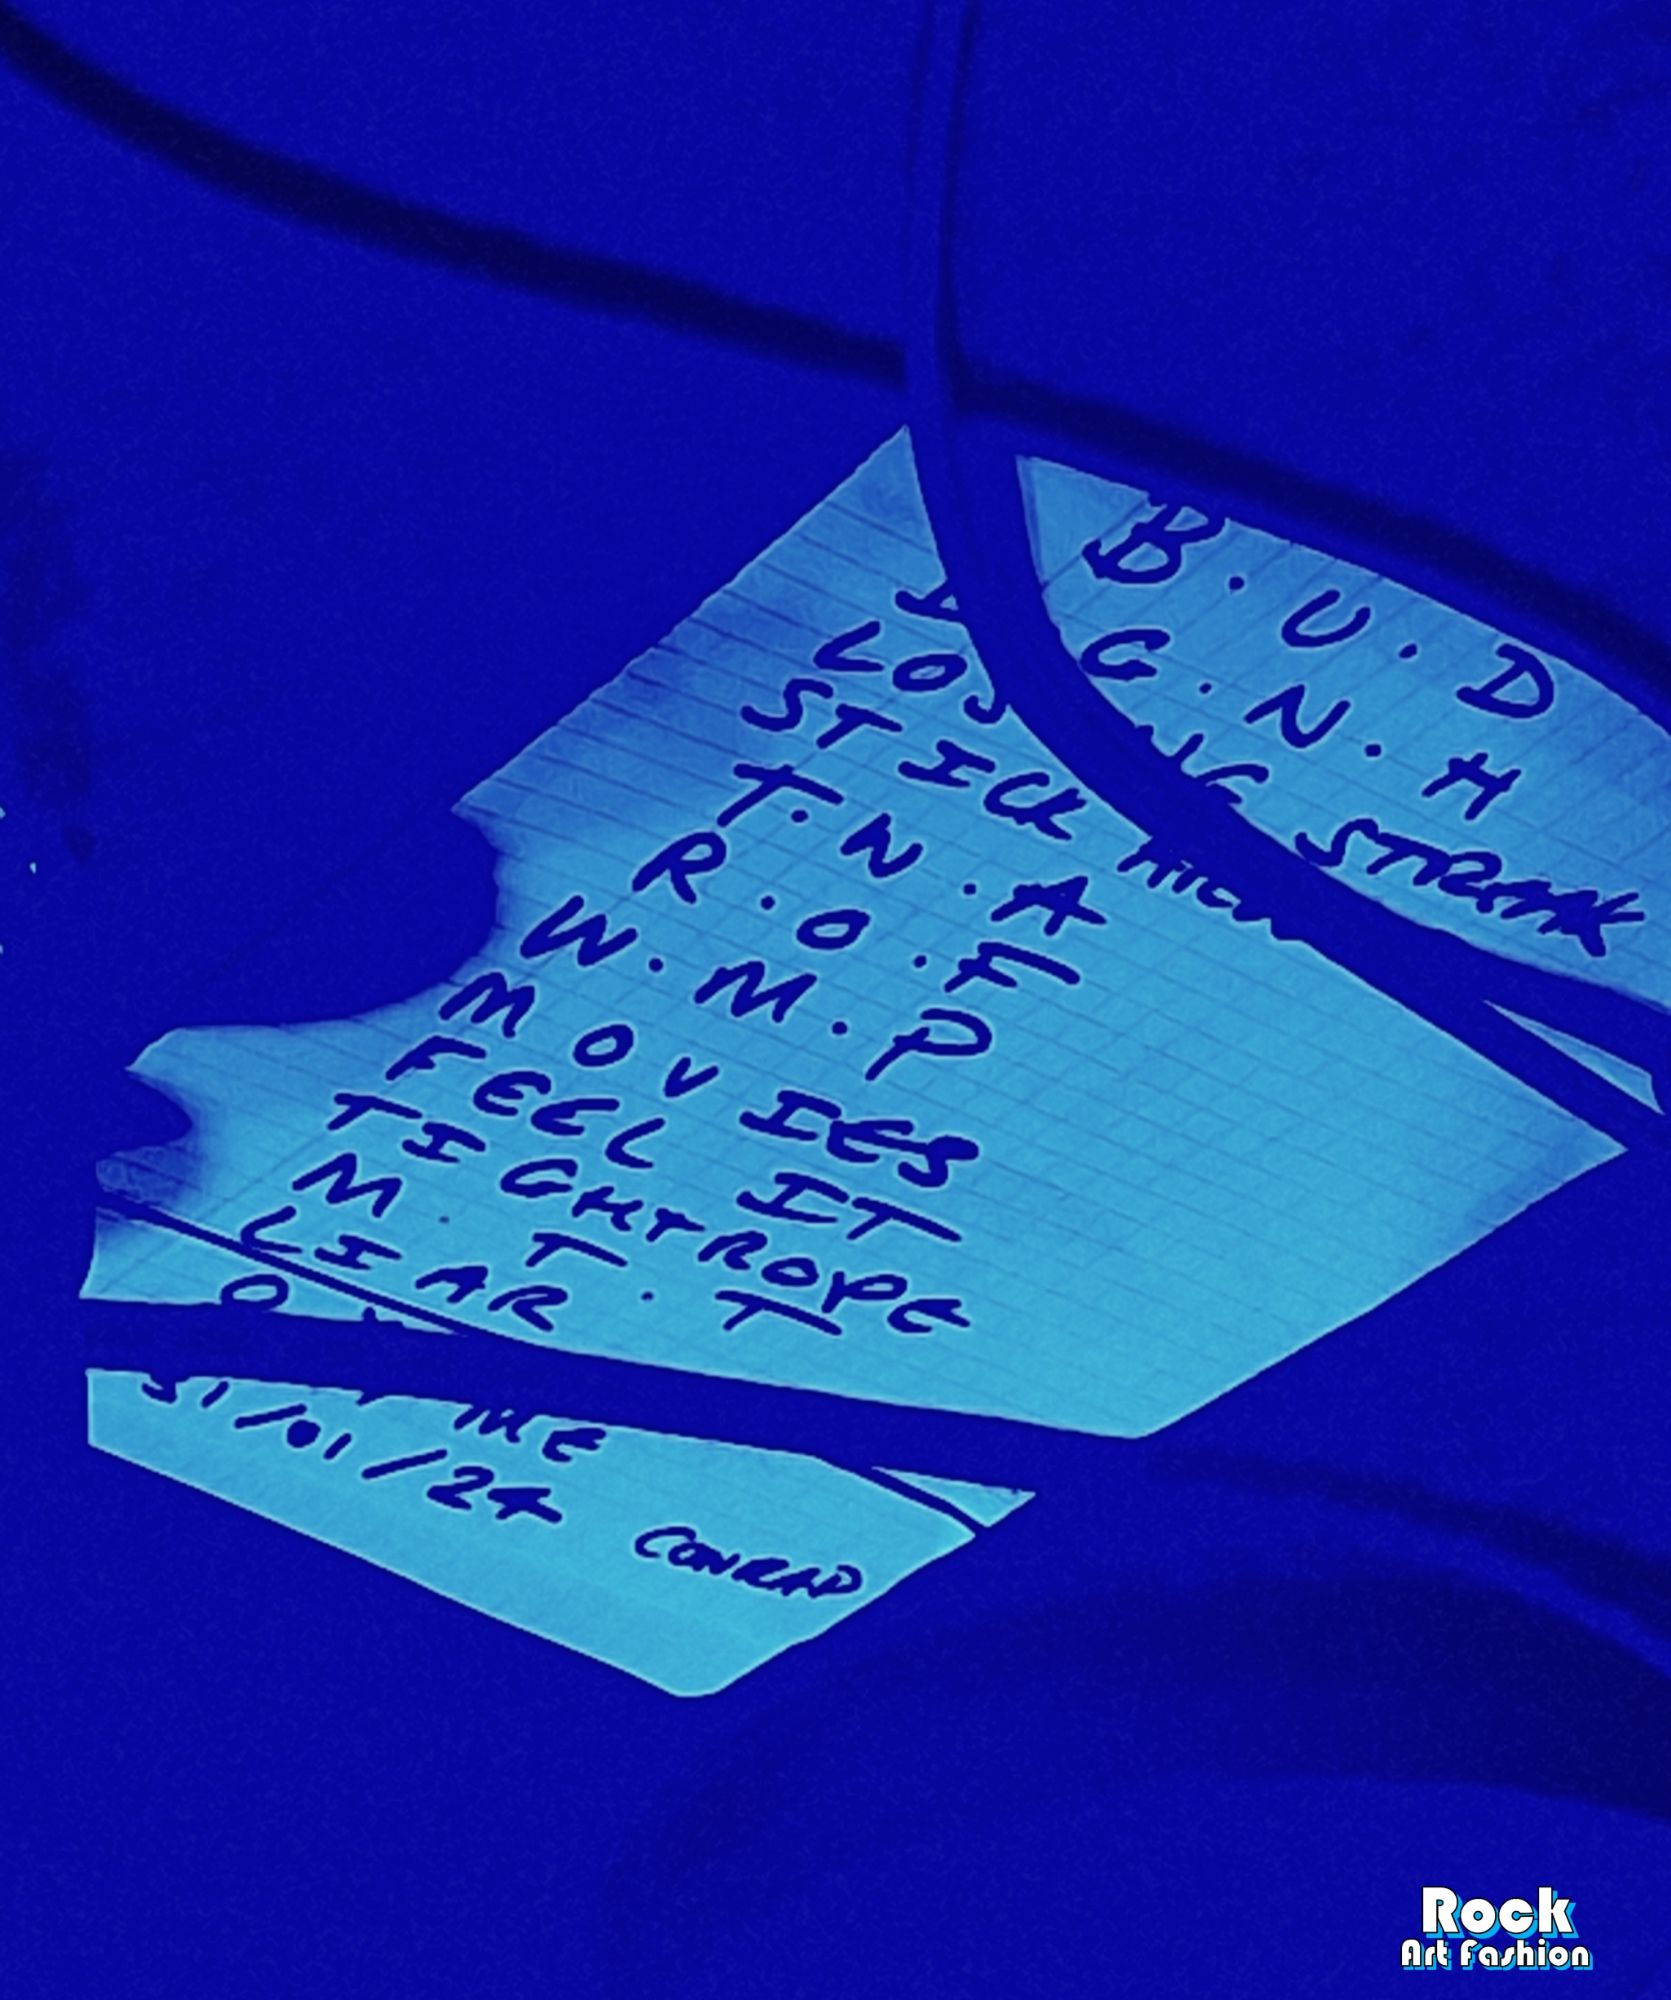 B.U.D
G.N.H
STREAK
STICK
T.N.A
R.O.F
W.M.P
MOVIES
FEEL IT
TIGHTROPE
M.T.T
LIAR
31/01/24 CONRAD
Rock
Art Fashion